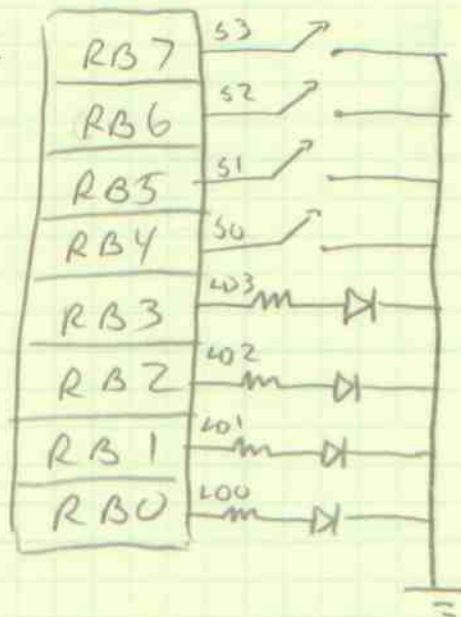 RB7 S3
RB6 S2
RB5 S1
RB4 S0
RB3 LD3
RB2 LD2
RB1 LD1
RB0 LD0